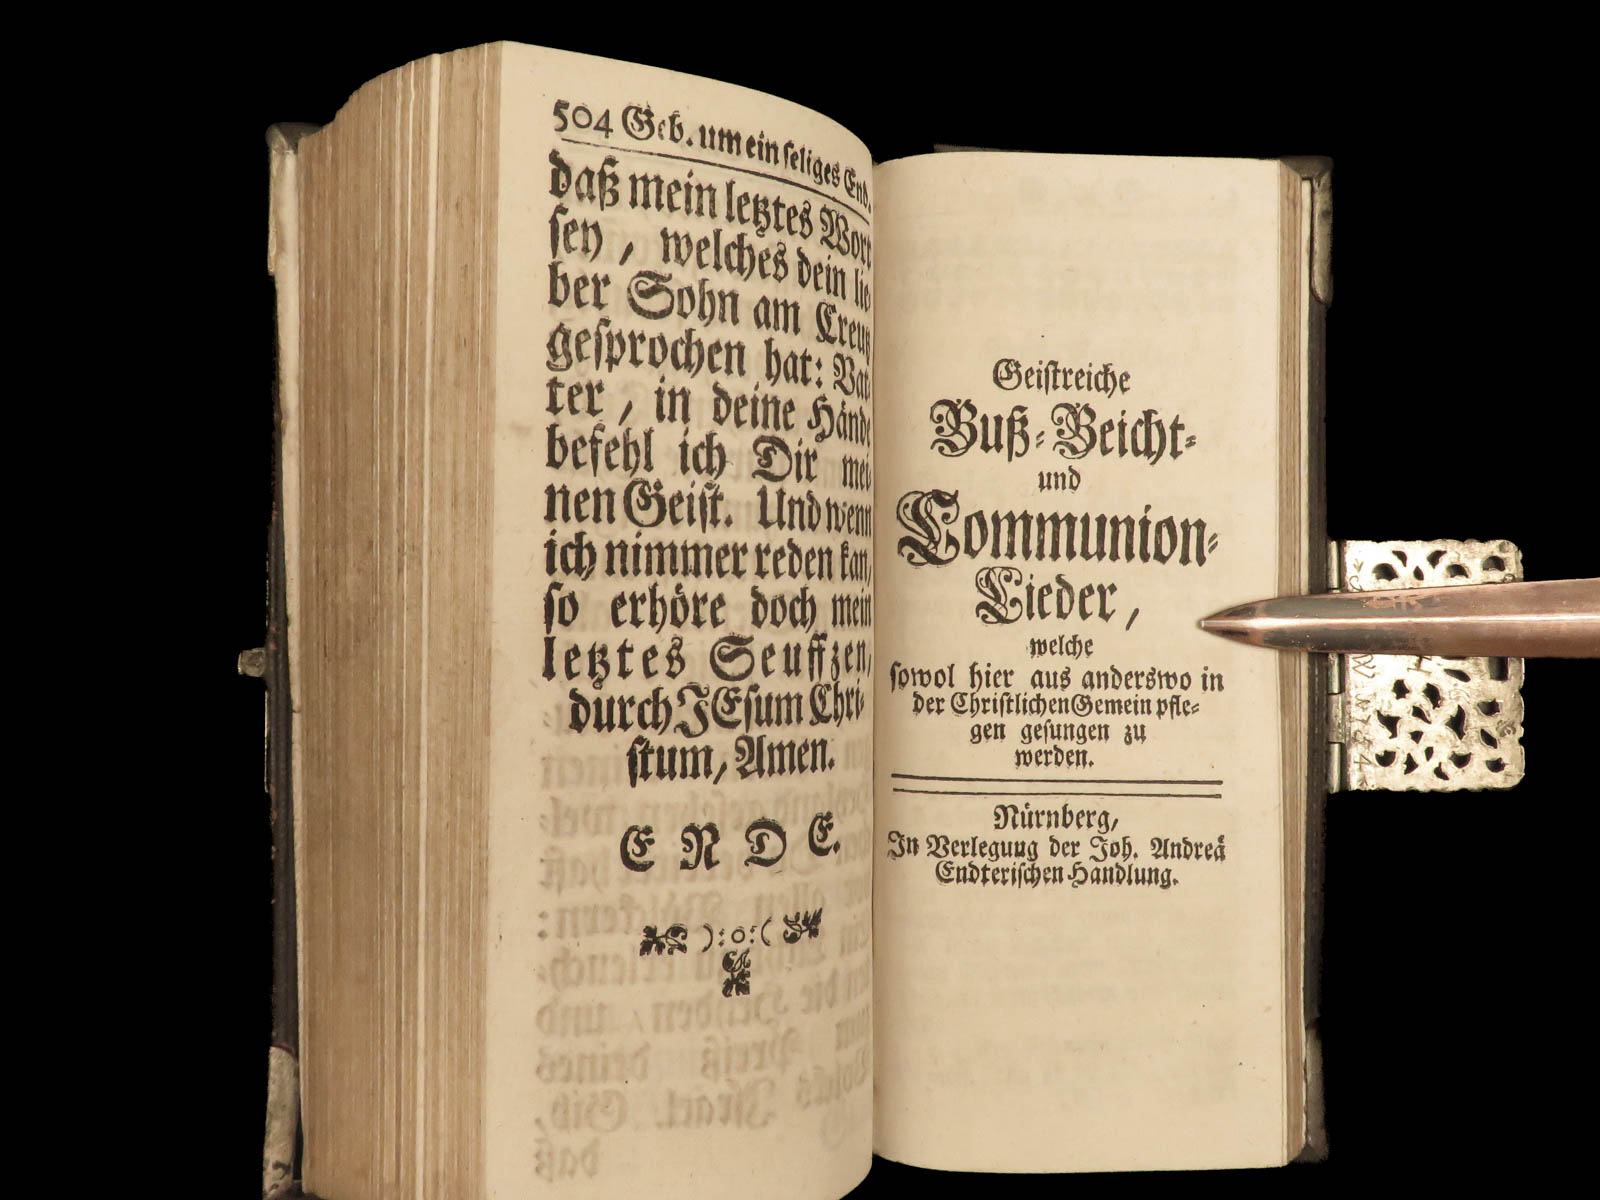 504 Geb. um ein seliges End.
daß mein letztes Wort
sey, welches dein lie-
ber Sohn am Creutz
gesprochen hat: Vat-
ter, in deine Hände
befehl ich Dir mei-
nen Geist. Und wenn
ich nimmer reden kan,
so erhöre doch mein
letztes Seuffzen,
durch JEsum Chri-
stum, Amen.
ENDE.
):o:(
Geistreiche
Buß-Beicht-
und
Communion-
Lieder,
welche
sowol hier aus anderswo in
der Christlichen Gemein pfle-
gen gesungen zu
werden.
Nürnberg,
In Verlegung der Joh. Andreä
Endterischen Handlung.